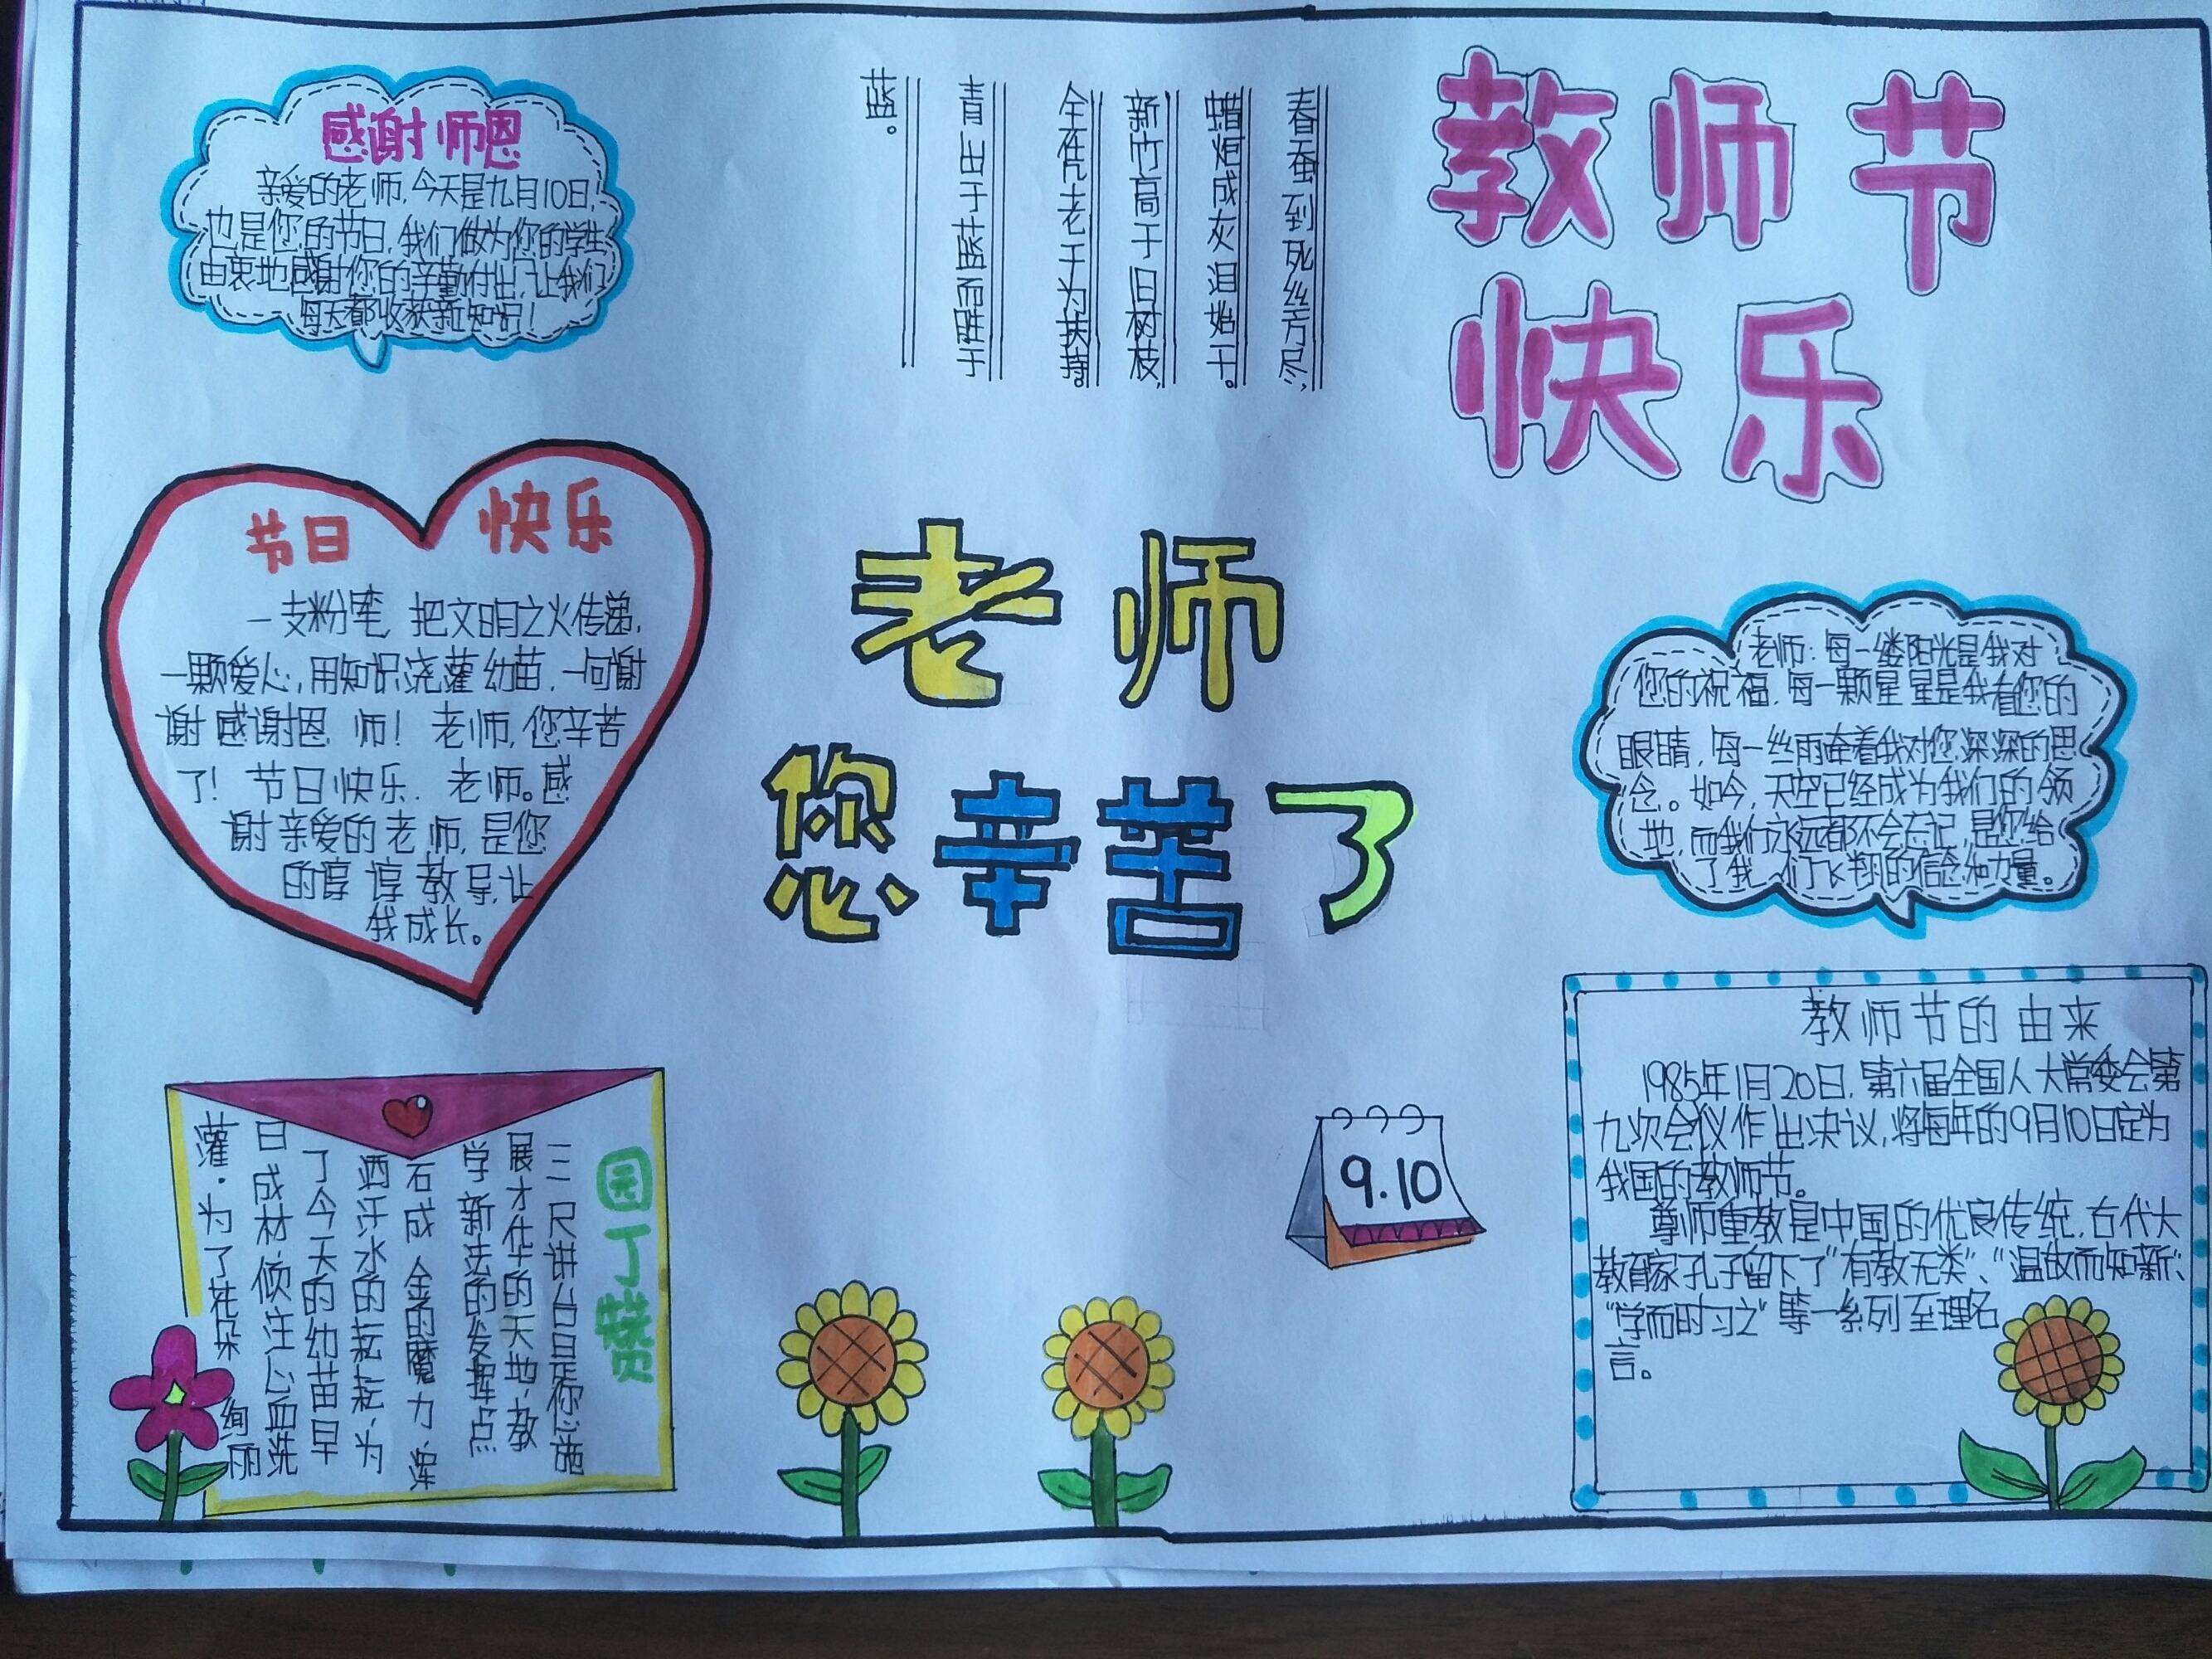 教师节
快乐
感谢师恩
亲爱的老师,今天是九月10日,
也是您的节日,我们做为您的学生
由衷地感谢您的辛勤付出,让我们
每天都收获新知识!
春蚕到死丝方尽,
蜡炬成灰泪始干。
新竹高于旧树枝,
全凭老干为扶持。
青出于蓝而胜于
蓝。
节日 快乐
一支粉笔,把文明之火传递,
一颗爱心,用知识浇灌幼苗,一句谢
谢 感谢恩 师! 老师,您辛苦
了! 节日快乐. 老师。感
谢亲爱的老师,是您
的谆谆教导,让
我成长。
老师
您辛苦了
老师:每一缕阳光是我对
您的祝福,每一颗星星是我看您的
眼睛,每一丝雨牵着我对您深深的思
念。如今,天空已经成为我们的领
地,而我们永远都不会忘记,是您给
了我们飞翔的信念和力量。
园丁赞
三尺讲台是你施
展才华的天地,教
学新法的发挥点
石成金的魔力,浑
洒汗水的耘耘,为
了今天的幼苗早
日成材,倾注心血浇
灌,为了花朵 绚丽
9.10
教师节的由来
1985年1月20日,第六届全国人大常委会第
九次会议作出决议,将每年的9月10日定为
我国的教师节。
尊师重教是中国的优良传统,古代大
教育家孔子留下了“有教无类”、“温故而知新”、
“学而时习之”等一系列至理名
言。